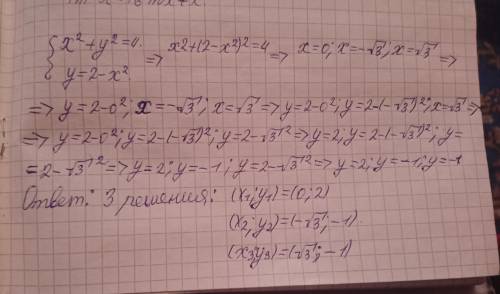 {x²+y²=4. ⇒ x2+(2-x²)²=4 ⇒ x=0; x=-√3; x=√3 ⇒
y=2-x²
⇒ y=2-0²; x=-√3; x=√3 ⇒ y=2-0²; y=2-(-√3)²; x=√3 ⇒
⇒ y=2-0²; y=2-(-√3)²; y=2-√3² ⇒ y=2; y=2-(-√3)²; y=
=2-√3² ⇒ y=2; y=-1; y=2-√3² ⇒ y=2; y=-1; y=-1
Ответ: 3 решения: (x₁;y₁)=(0;2)
(x₂;y₂)=(-√3;-1)
(x₃;y₃)=(√3;-1)